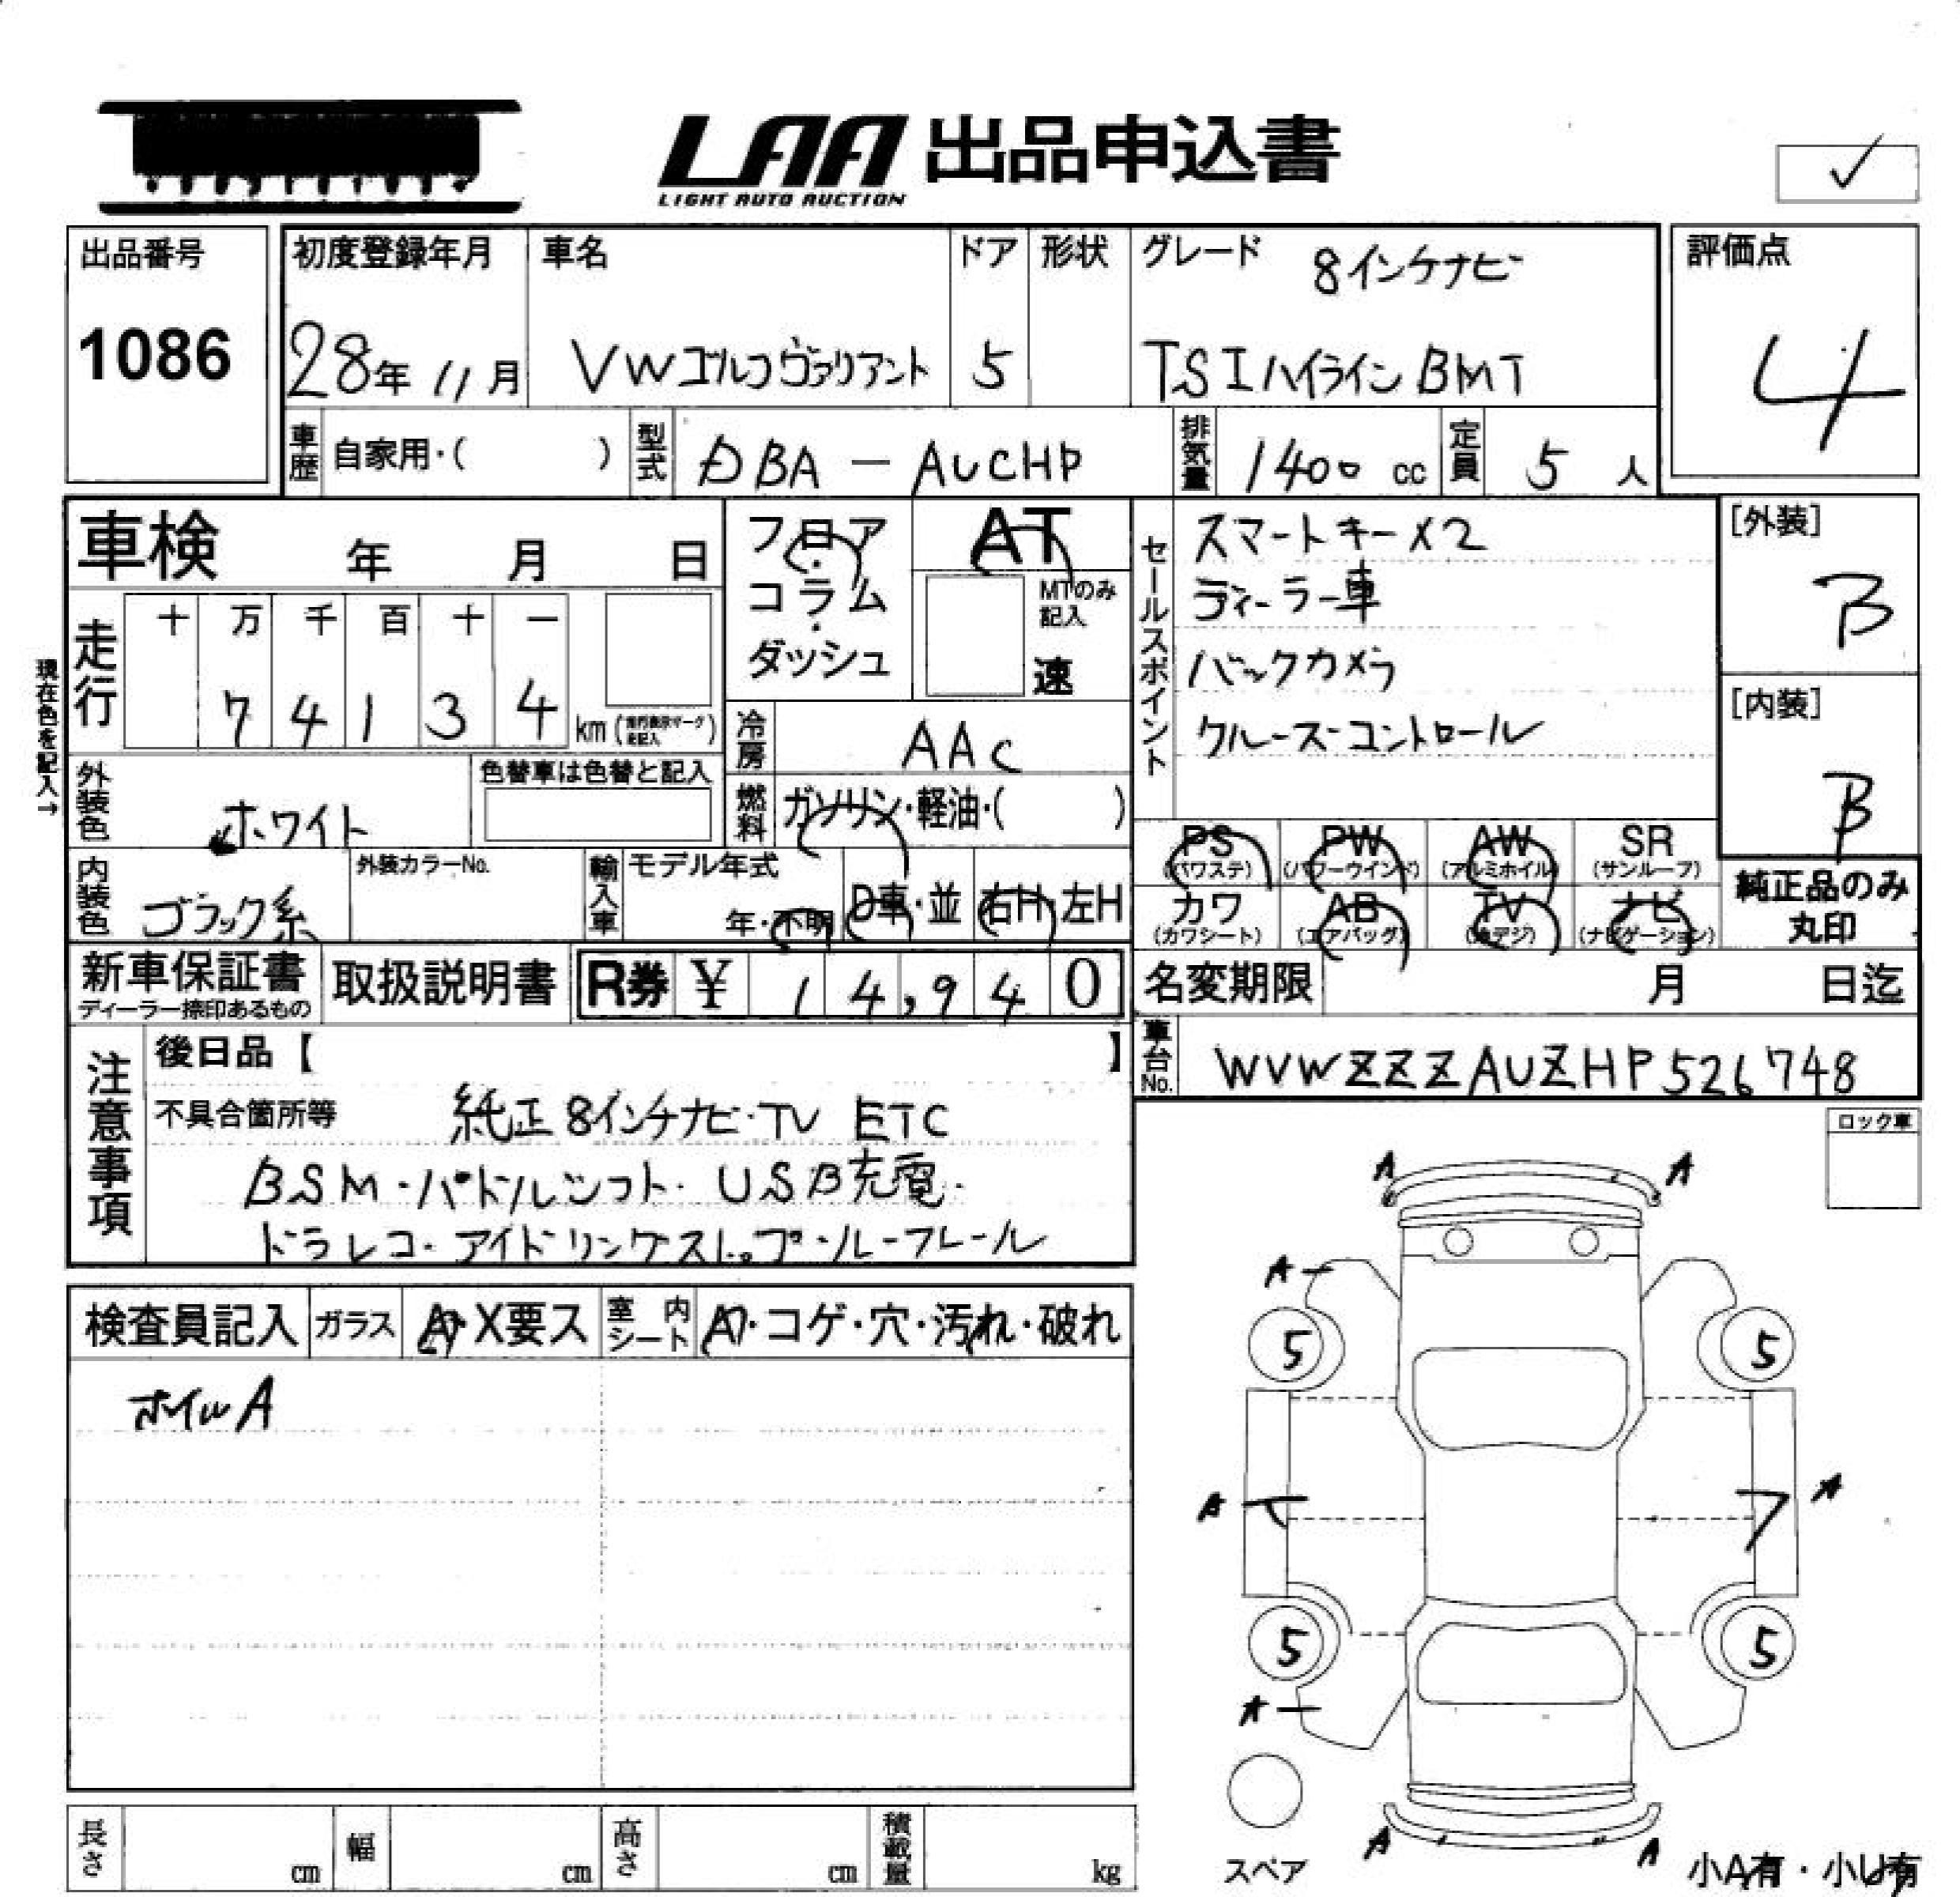 LAA 出品申込書
LIGHT AUTO AUCTION
✓
出品番号
1086
初度登録年月
28年 11月
車名
VWゴルフヴァリアント
ドア
5
形状
グレード 8インチナビ
TSIハイラインBMT
評価点
4
車歴 自家用・( )
型式 DBA - AUCHP
排気量 1400 cc
定員 5 人
車検 年 月 日
現在色を記入→
走行 十 万 千 百 十 一
7 4 1 3 4 km
外装色 ホワイト
色替車は色替と記入
内装色 ブラック系
外装カラーNo.
フロア・コラム・ダッシュ
AT
MTのみ記入
速
冷房 AAC
燃料 ガソリン・軽油・( )
輸入車 モデル年式
年・不明 D車・並 右H・左H
セールスポイント
スマートキーX2
ディーラー車
バックカメラ
クルーズコントロール
[外装]
B
[内装]
B
PS (パワステ) PW (パワーウインド) AW (アルミホイル) SR (サンルーフ)
カワ (カワシート) AB (エアバッグ) TV (地デジ) ナビ (ナビゲーション)
純正品のみ丸印
新車保証書
ディーラー捺印あるもの
取扱説明書
R券 ¥ 14,940
名変期限 月 日迄
車台No. WVWZZZAUZHP526748
注意事項
後日品【 】
不具合箇所等 純正8インチナビ・TV ETC
BSM・パドルシフト・USB充電・
ドラレコ・アイドリングストップ・ルーフレール
ロック車
検査員記入 ガラス A・X要ス 室内シート A・コゲ・穴・汚れ・破れ
ホイルA
A A
A
5 5
A A
5 5
A
スペア
A A
小A有・小U有
長さ cm 幅 cm 高さ cm 積載量 kg